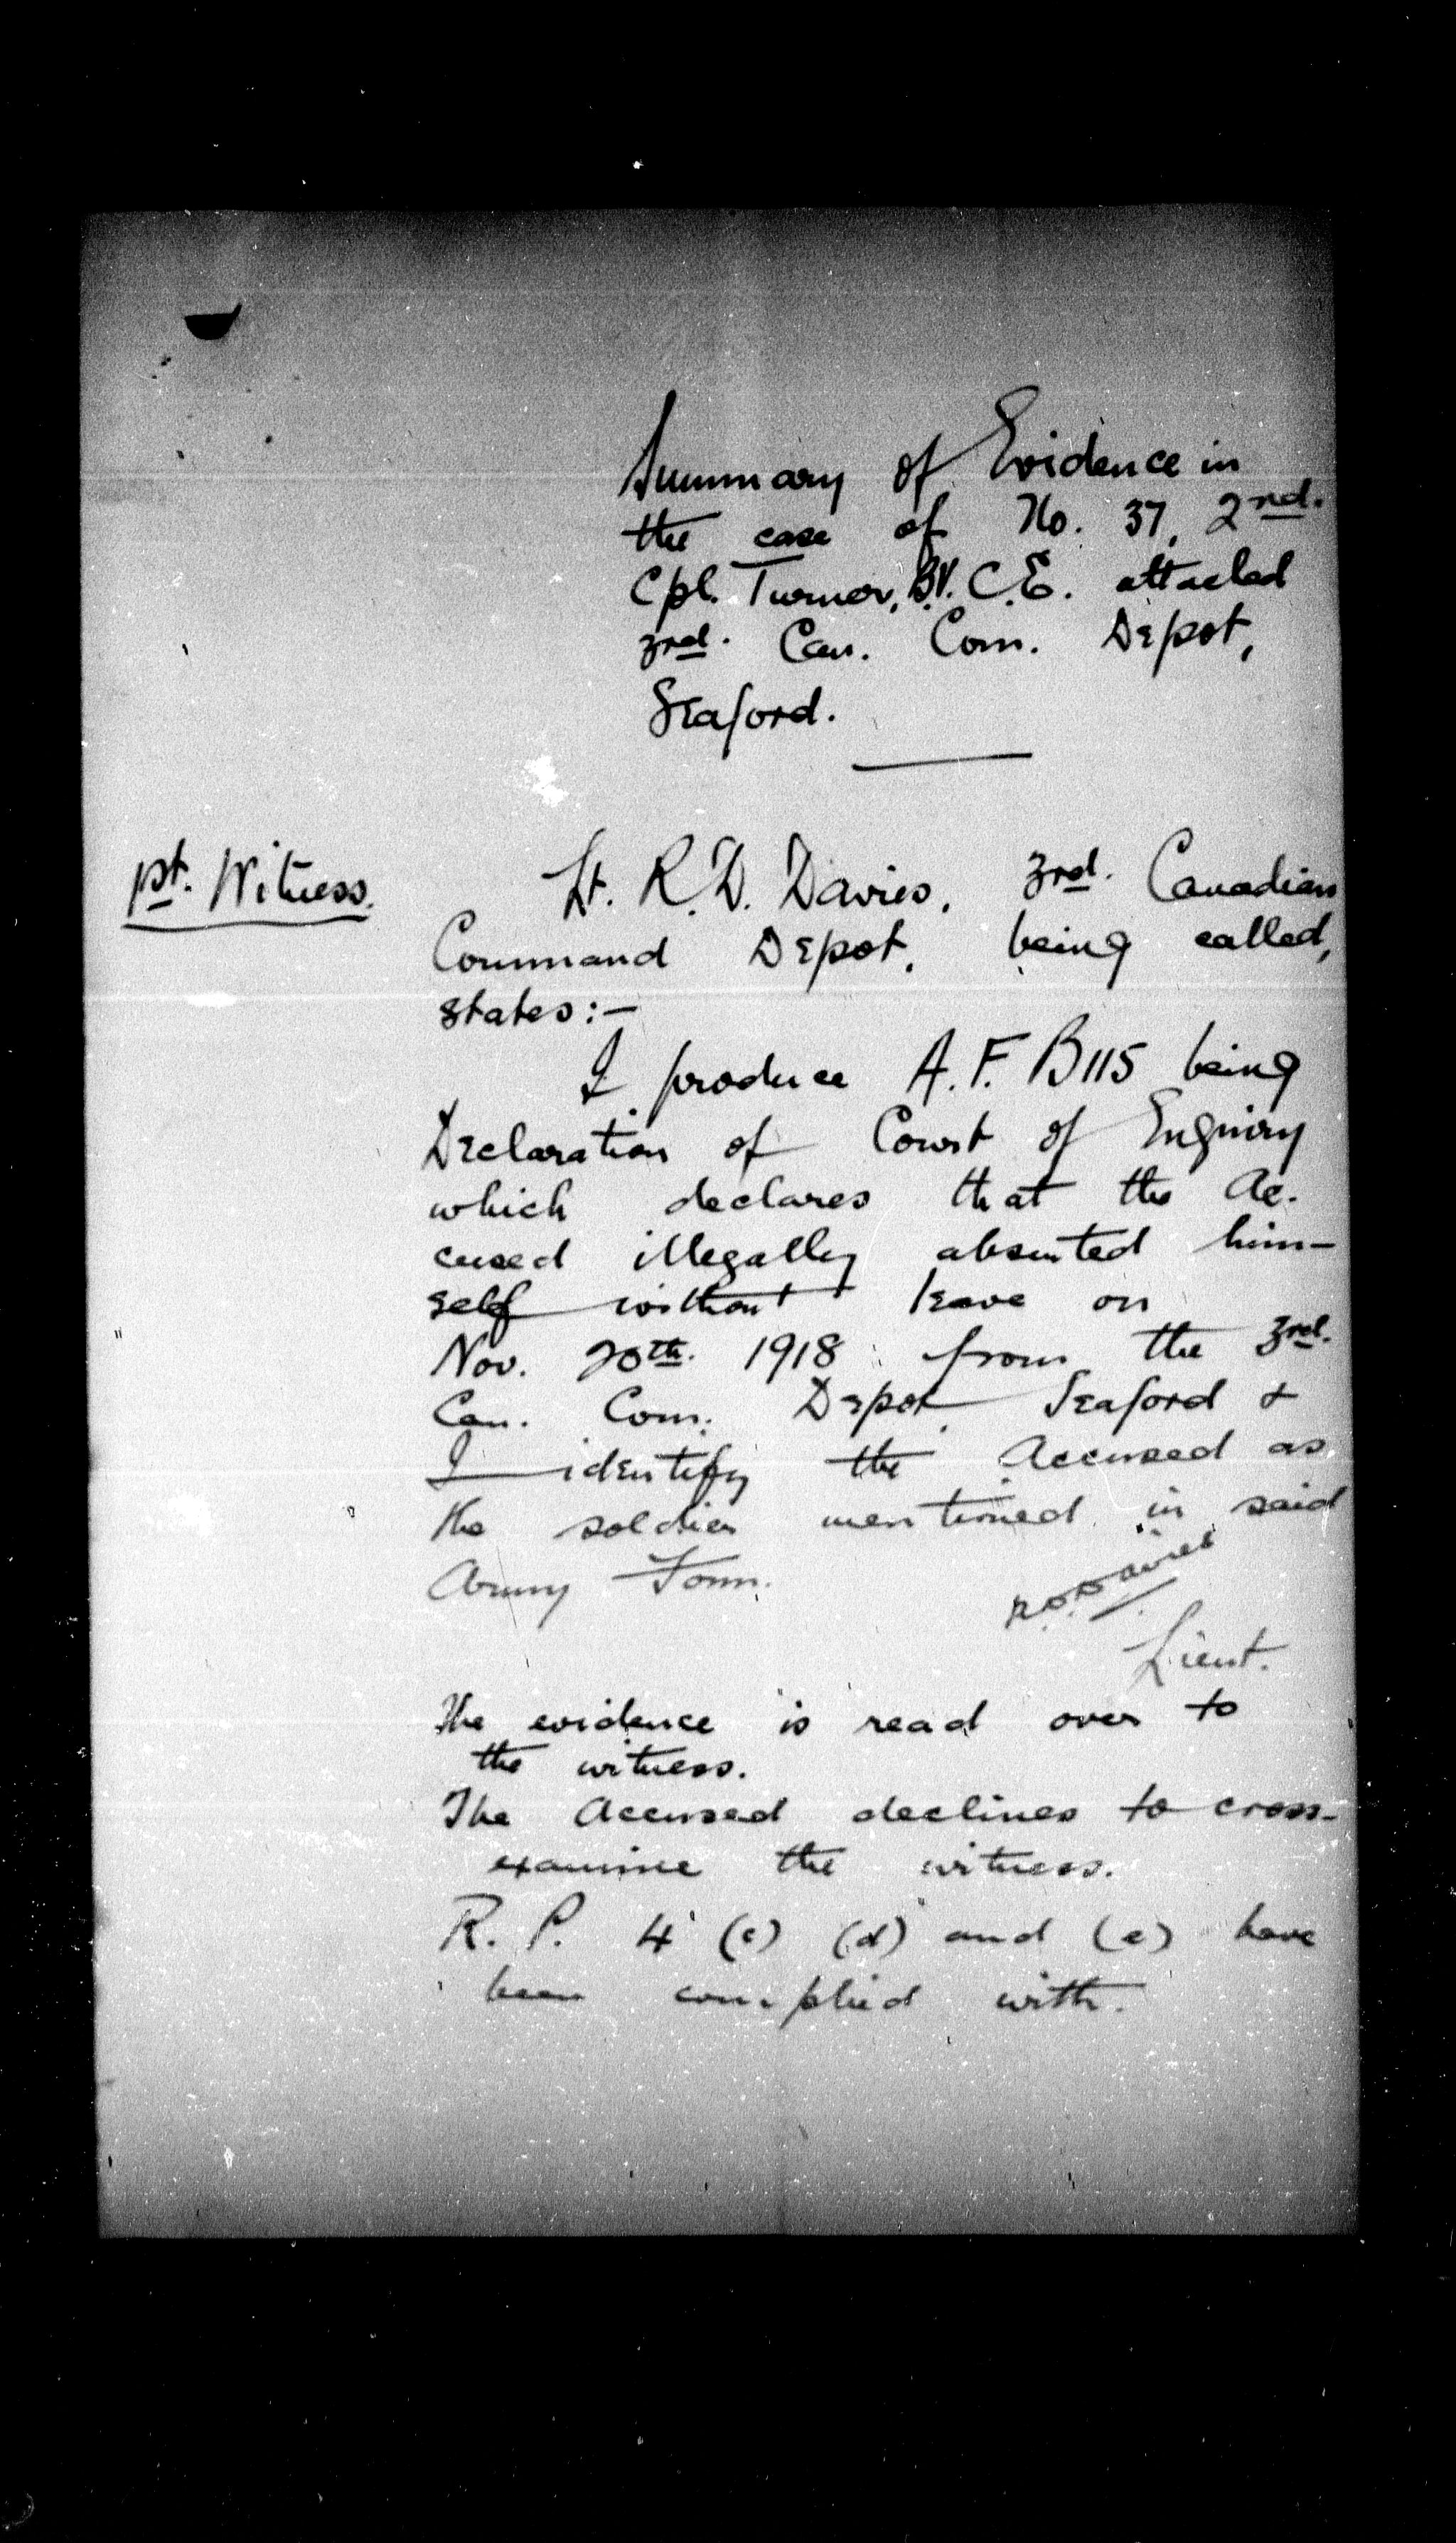 Summary of Evidence in
the case of No. 37, 2nd.
Cpl. Turner, B.V. C.E. attached
3rd. Can. Com. Depot,
Seaford.
1st. Witness.
Lt. R.D. Davies, 3rd. Canadian
Command Depot, being called,
states:—
I produce A.F. B115 being
Declaration of Court of Enquiry
which declares that the Ac-
cused illegally absented him-
self without leave on
Nov. 20th. 1918 from the 3rd.
Can. Com. Depot Seaford &
I identify the Accused as
the soldier mentioned in said
Army Form.
R.D. Davies
Lieut.
The evidence is read over to
the witness.
The Accused declines to cross-
examine the witness.
R.P. 4 (c) (d) and (e) have
been complied with.